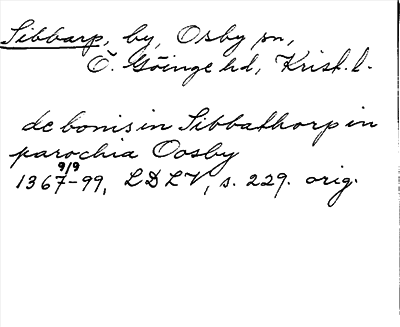 Sibbarp, by, Osby sn,
Ö. Göinge hd, Krist. l.
de bonis in Sibbathorp in
parochia Oosby
9/9
1367-99, LDLV, s. 229. orig.